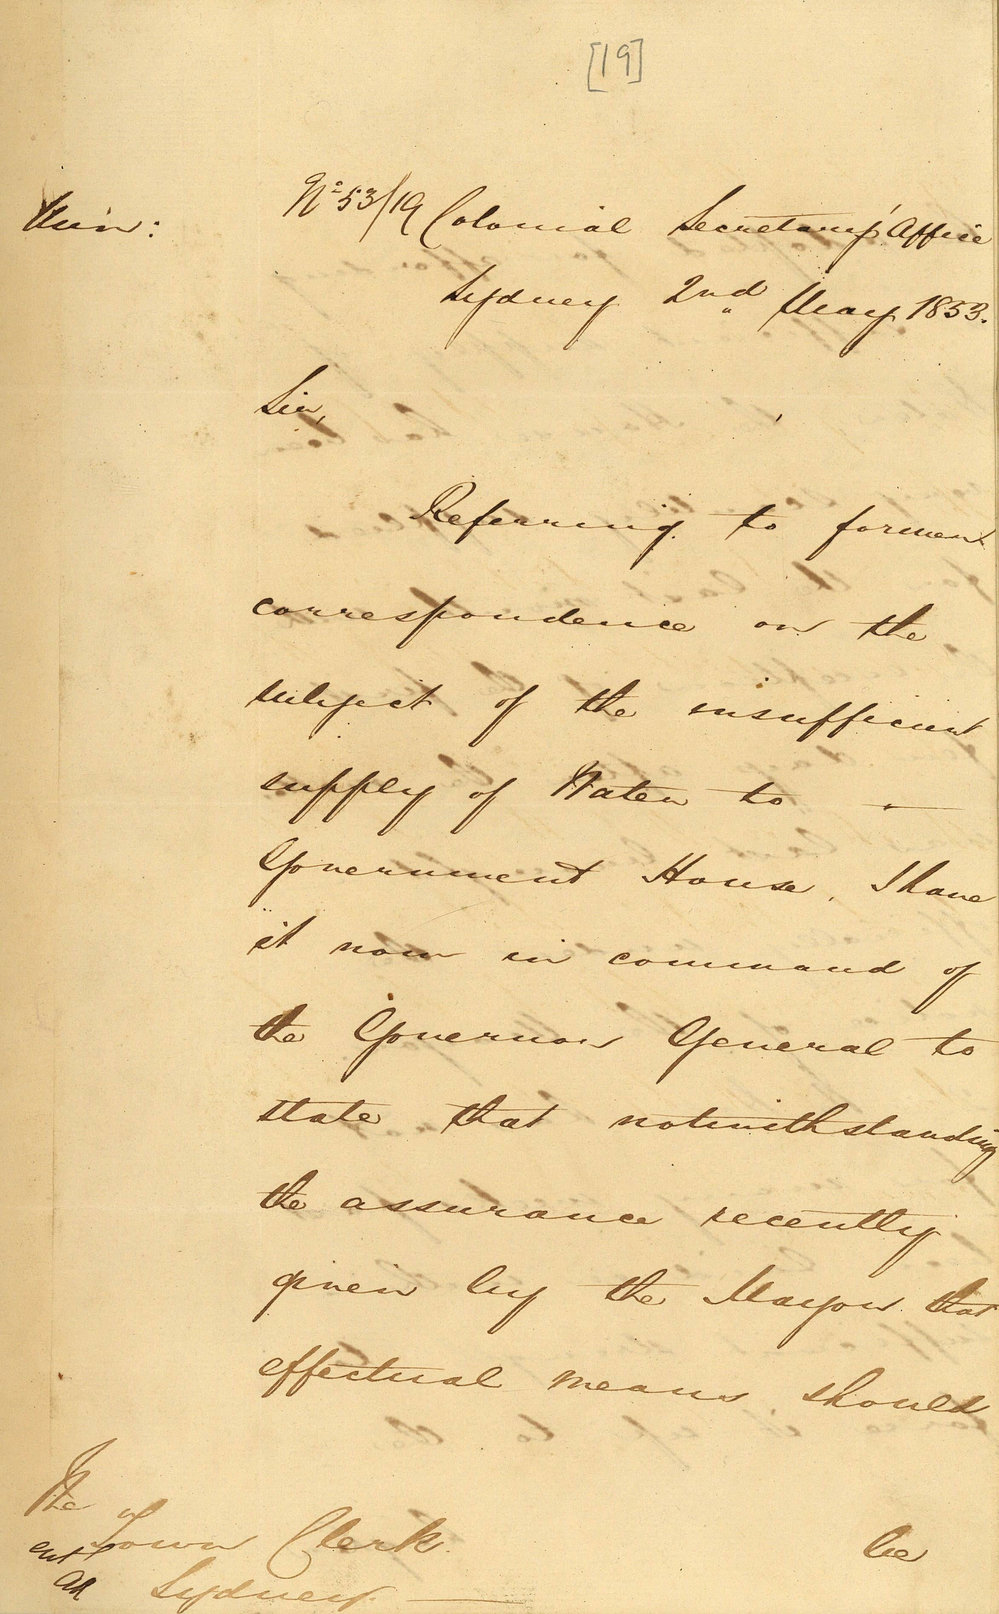 [19]
Min:
No 53/19 Colonial Secretary's Office
Sydney 2nd May 1853.
Sir,
Referring to former
correspondence on the
subject of the insufficient
supply of Water to —
Government House, I have
it now in command of
the Governor General to
state that notwithstanding
the assurance recently
given by the Mayor that
effectual means should
be
The
Town Clerk.
Sydney. —
ent